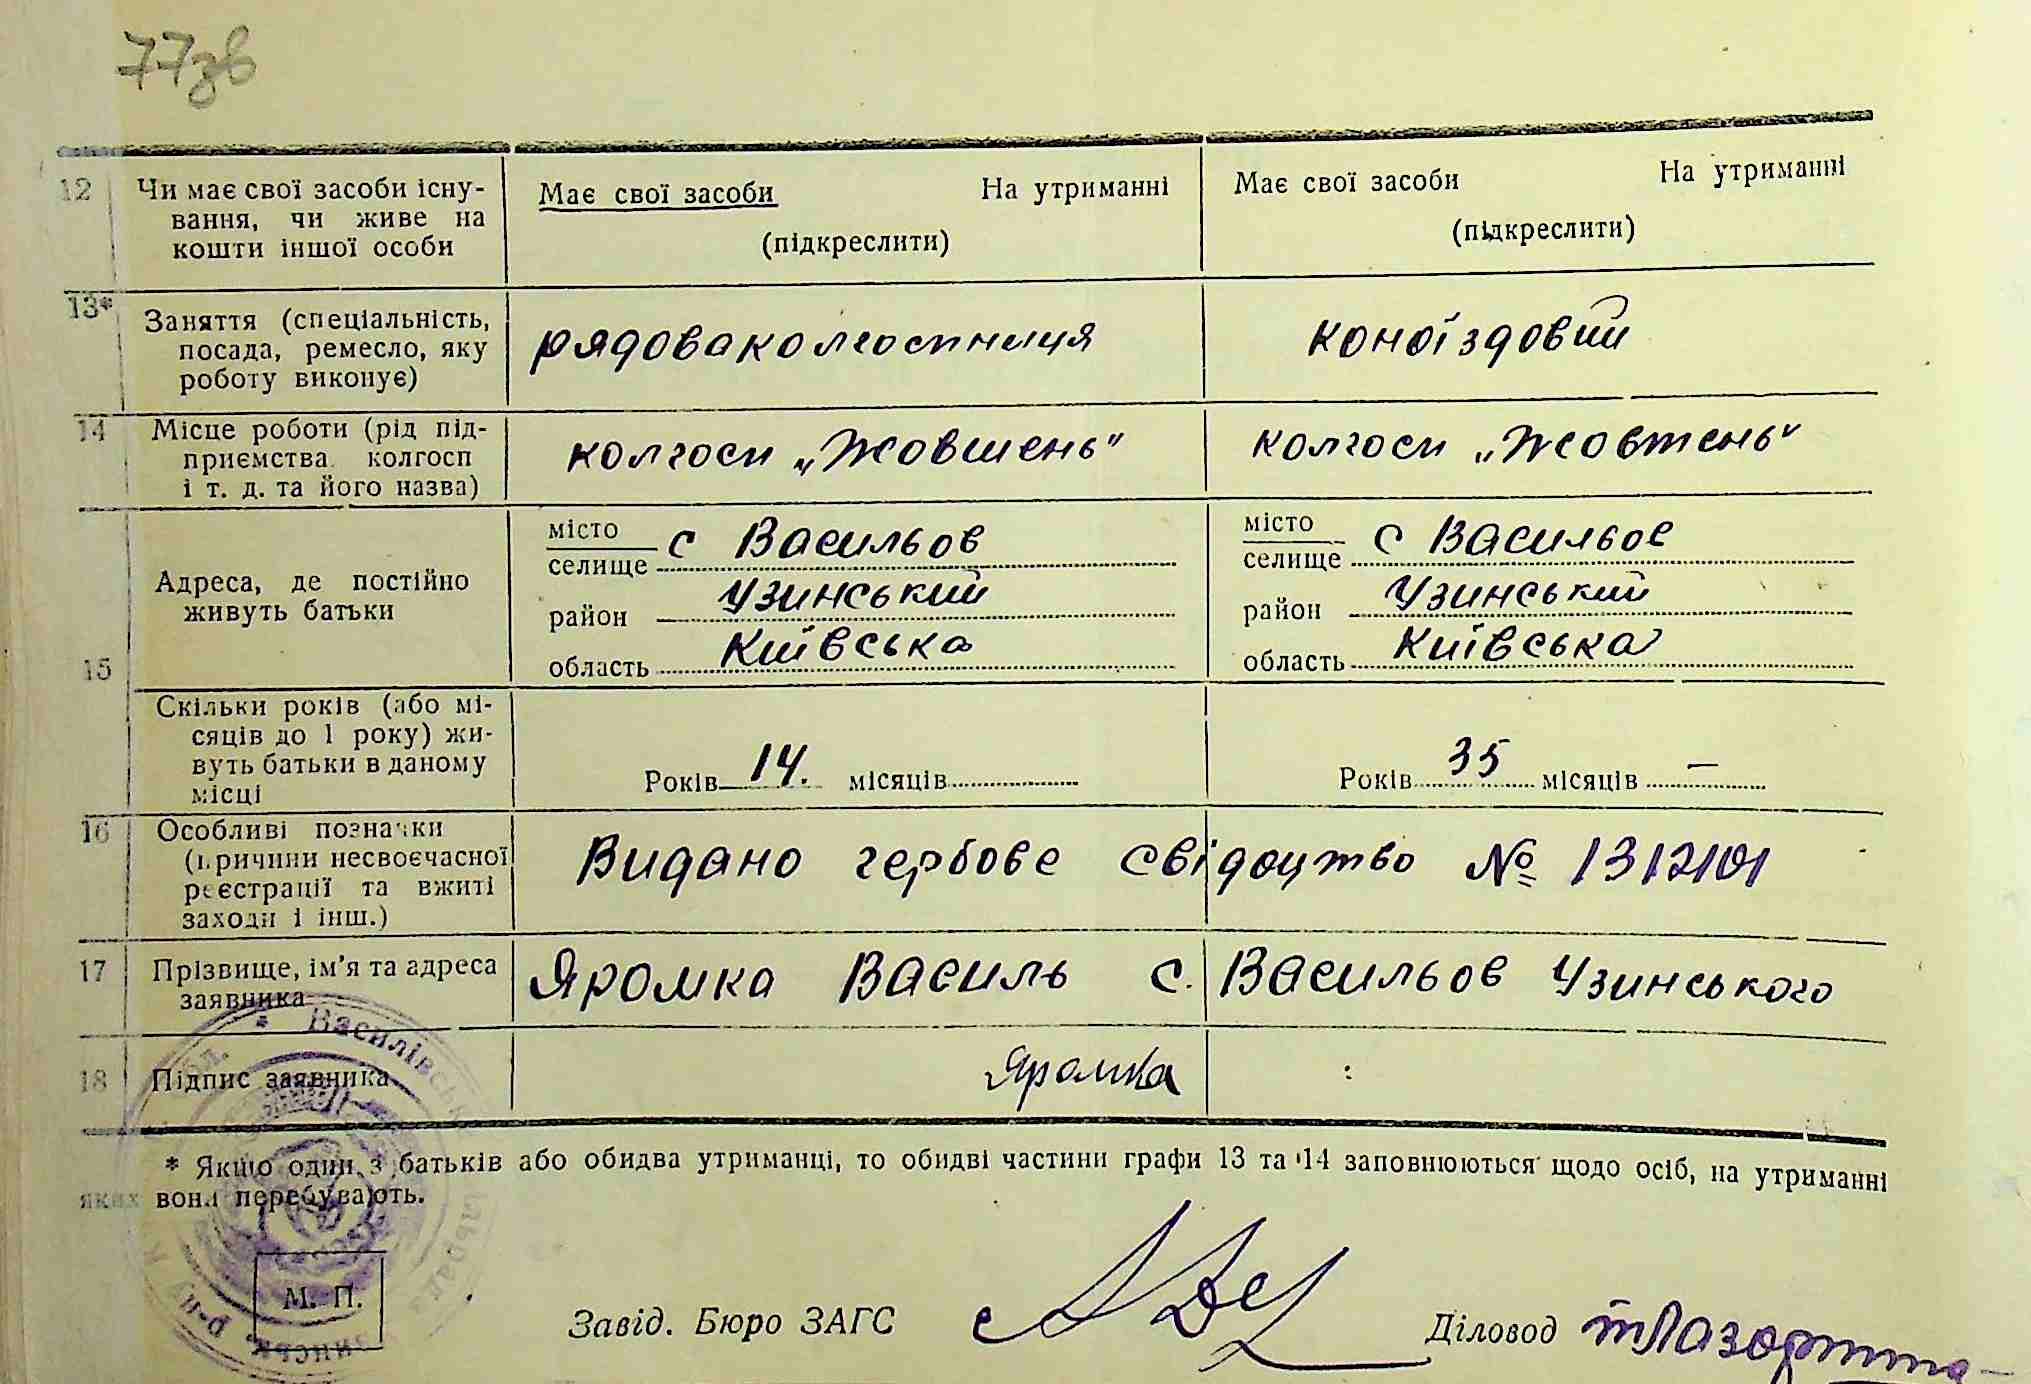 77зв
12 Чи має свої засоби існу-
вання, чи живе на
кошти іншої особи
Має свої засоби На утриманні
(підкреслити)
Має свої засоби На утриманні
(підкреслити)
13* Заняття (спеціальність,
посада, ремесло, яку
роботу виконує)
рядова колгоспниця
коноїздовий
14 Місце роботи (рід під-
приємства колгосп
і т. д. та його назва)
колгосп „Жовтень"
колгосп „Жовтень"
15 Адреса, де постійно
живуть батьки
місто
селище с Васильов
район Узинський
область Київська
місто
селище с Васильов
район Узинський
область Київська
Скільки років (або мі-
сяців до 1 року) жи-
вуть батьки в даному
місці
Років 14. місяців
Років 35 місяців —
16 Особливі позначки
(причини несвоєчасної
реєстрації та вжиті
заходи і інш.)
Видано гербове свідоцтво № 1312101
17 Прізвище, ім'я та адреса
заявника
Яромка Василь с. Васильов Узинського
18 Підпис заявника
Яромка
* Якщо один з батьків або обидва утриманці, то обидві частини графи 13 та 14 заповнюються щодо осіб, на утриманні
яких вони перебувають.
М. П.
Завід. Бюро ЗАГС
Діловод